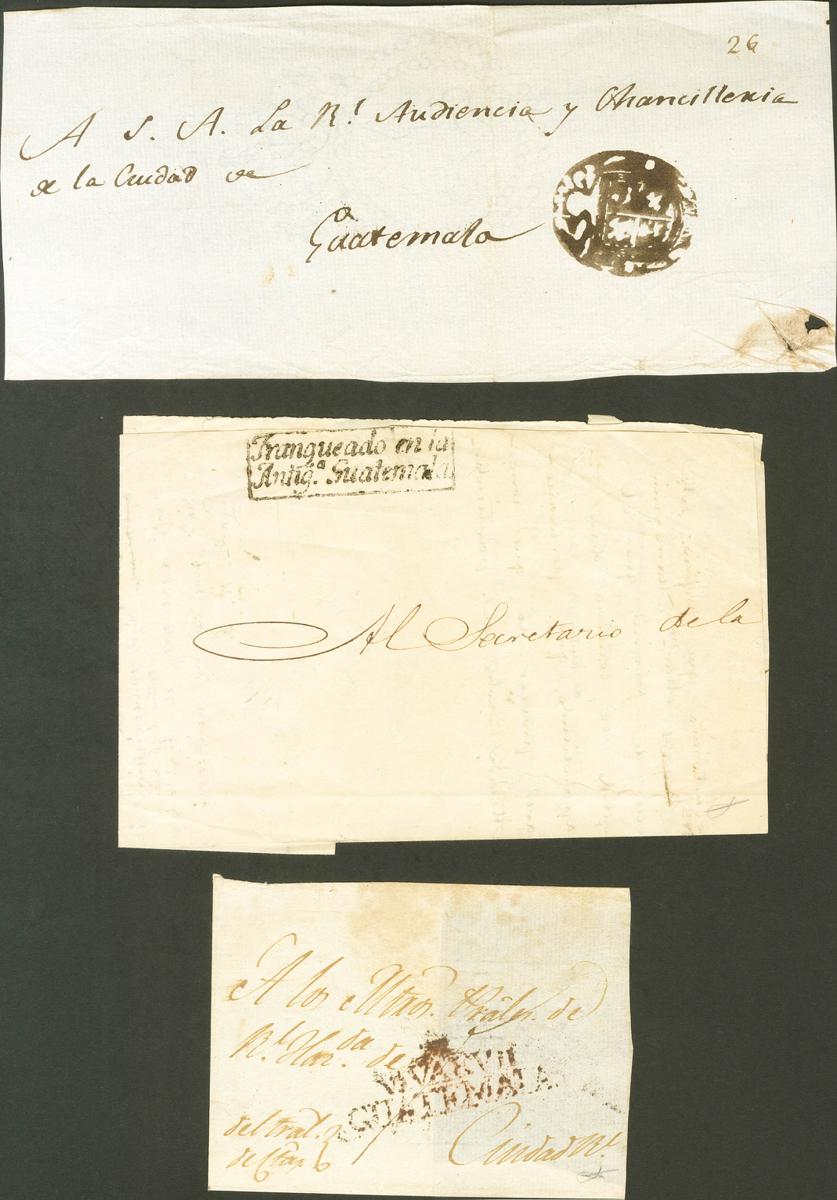 26
A S. A. La Rl. Audiencia y Chancilleria
de la Ciudad de
Guatemala
Franqueado en la
Antig.a Guatemala
Al Secretario de la
A los de
Rl. Haz.da de
VIVA F VII
GUATEMALA
del tral.
Ciudad Rl.